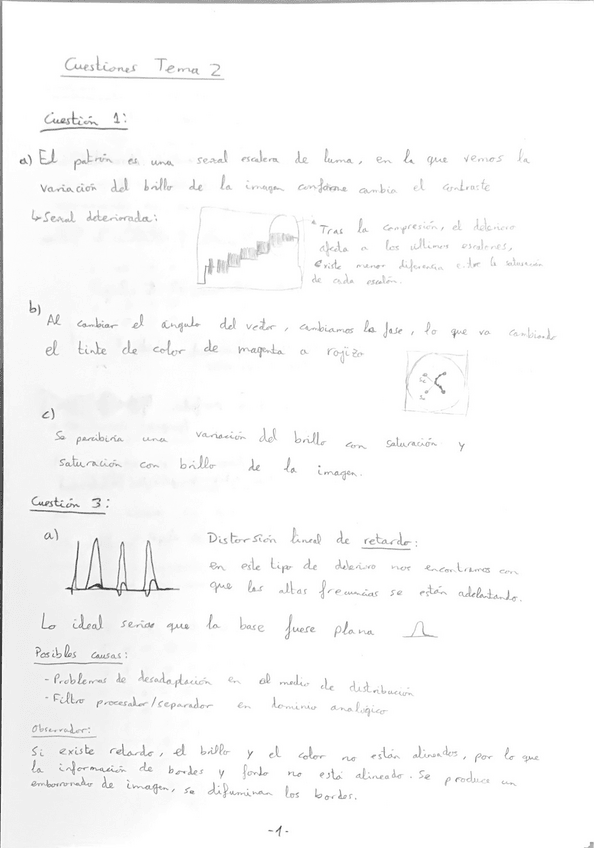 Cuestiones Tema 2
Cuestión 1:
a) El patrón es una señal escalera de luma, en la que vemos la
variación del brillo de la imagen conforme cambia el contraste
↳ Señal deteriorada:
* Tras la compresión, el deterioro
afecta a los últimos escalones,
existe menor diferencia entre la saturación
de cada escalón.
b)
Al cambiar el ángulo del vector, cambiamos la fase, lo que va cambiando
el tinte de color de magenta a rojizo
c)
Se percibiría una variación del brillo con saturación y
saturación con brillo de la imagen.
Cuestión 3:
a)
Distorsión lineal de retardo:
En este tipo de deterioro nos encontramos con
que las altas frecuencias se están adelantando.
Lo ideal sería que la base fuese plana
Posibles causas:
- Problemas de desadaptación en el medio de distribución
- Filtro procesador/separador en dominio analógico
Observador:
Si existe retardo, el brillo y el color no están alineados, por lo que
la información de bordes y fondo no está alineado. Se produce un
emborronado de imagen, se difuminan los bordes.
-1-